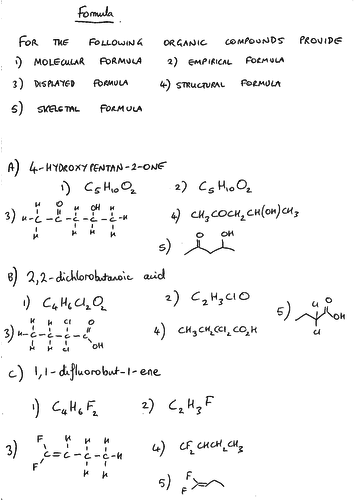 Formula
FOR THE FOLLOWING ORGANIC COMPOUNDS PROVIDE
1) MOLECULAR FORMULA 2) EMPIRICAL FORMULA
3) DISPLAYED FORMULA 4) STRUCTURAL FORMULA
5) SKELETAL FORMULA
A) 4-HYDROXYPENTAN-2-ONE
1) C5H10O2 2) C5H10O2
3) H O H OH H
H-C-C-C-C-C-H
H H H H
4) CH3COCH2CH(OH)CH3
5) O OH
B) 2,2-dichlorobutanoic acid
1) C4H6Cl2O2 2) C2H3ClO
3) H H Cl O
H-C-C-C-C
H H Cl OH
4) CH3CH2CCl2CO2H
5) Cl O
OH
Cl
C) 1,1-difluorobut-1-ene
1) C4H6F2 2) C2H3F
3) F H H H
C=C-C-C-H
F H H
4) CF2CHCH2CH3
5) F
F